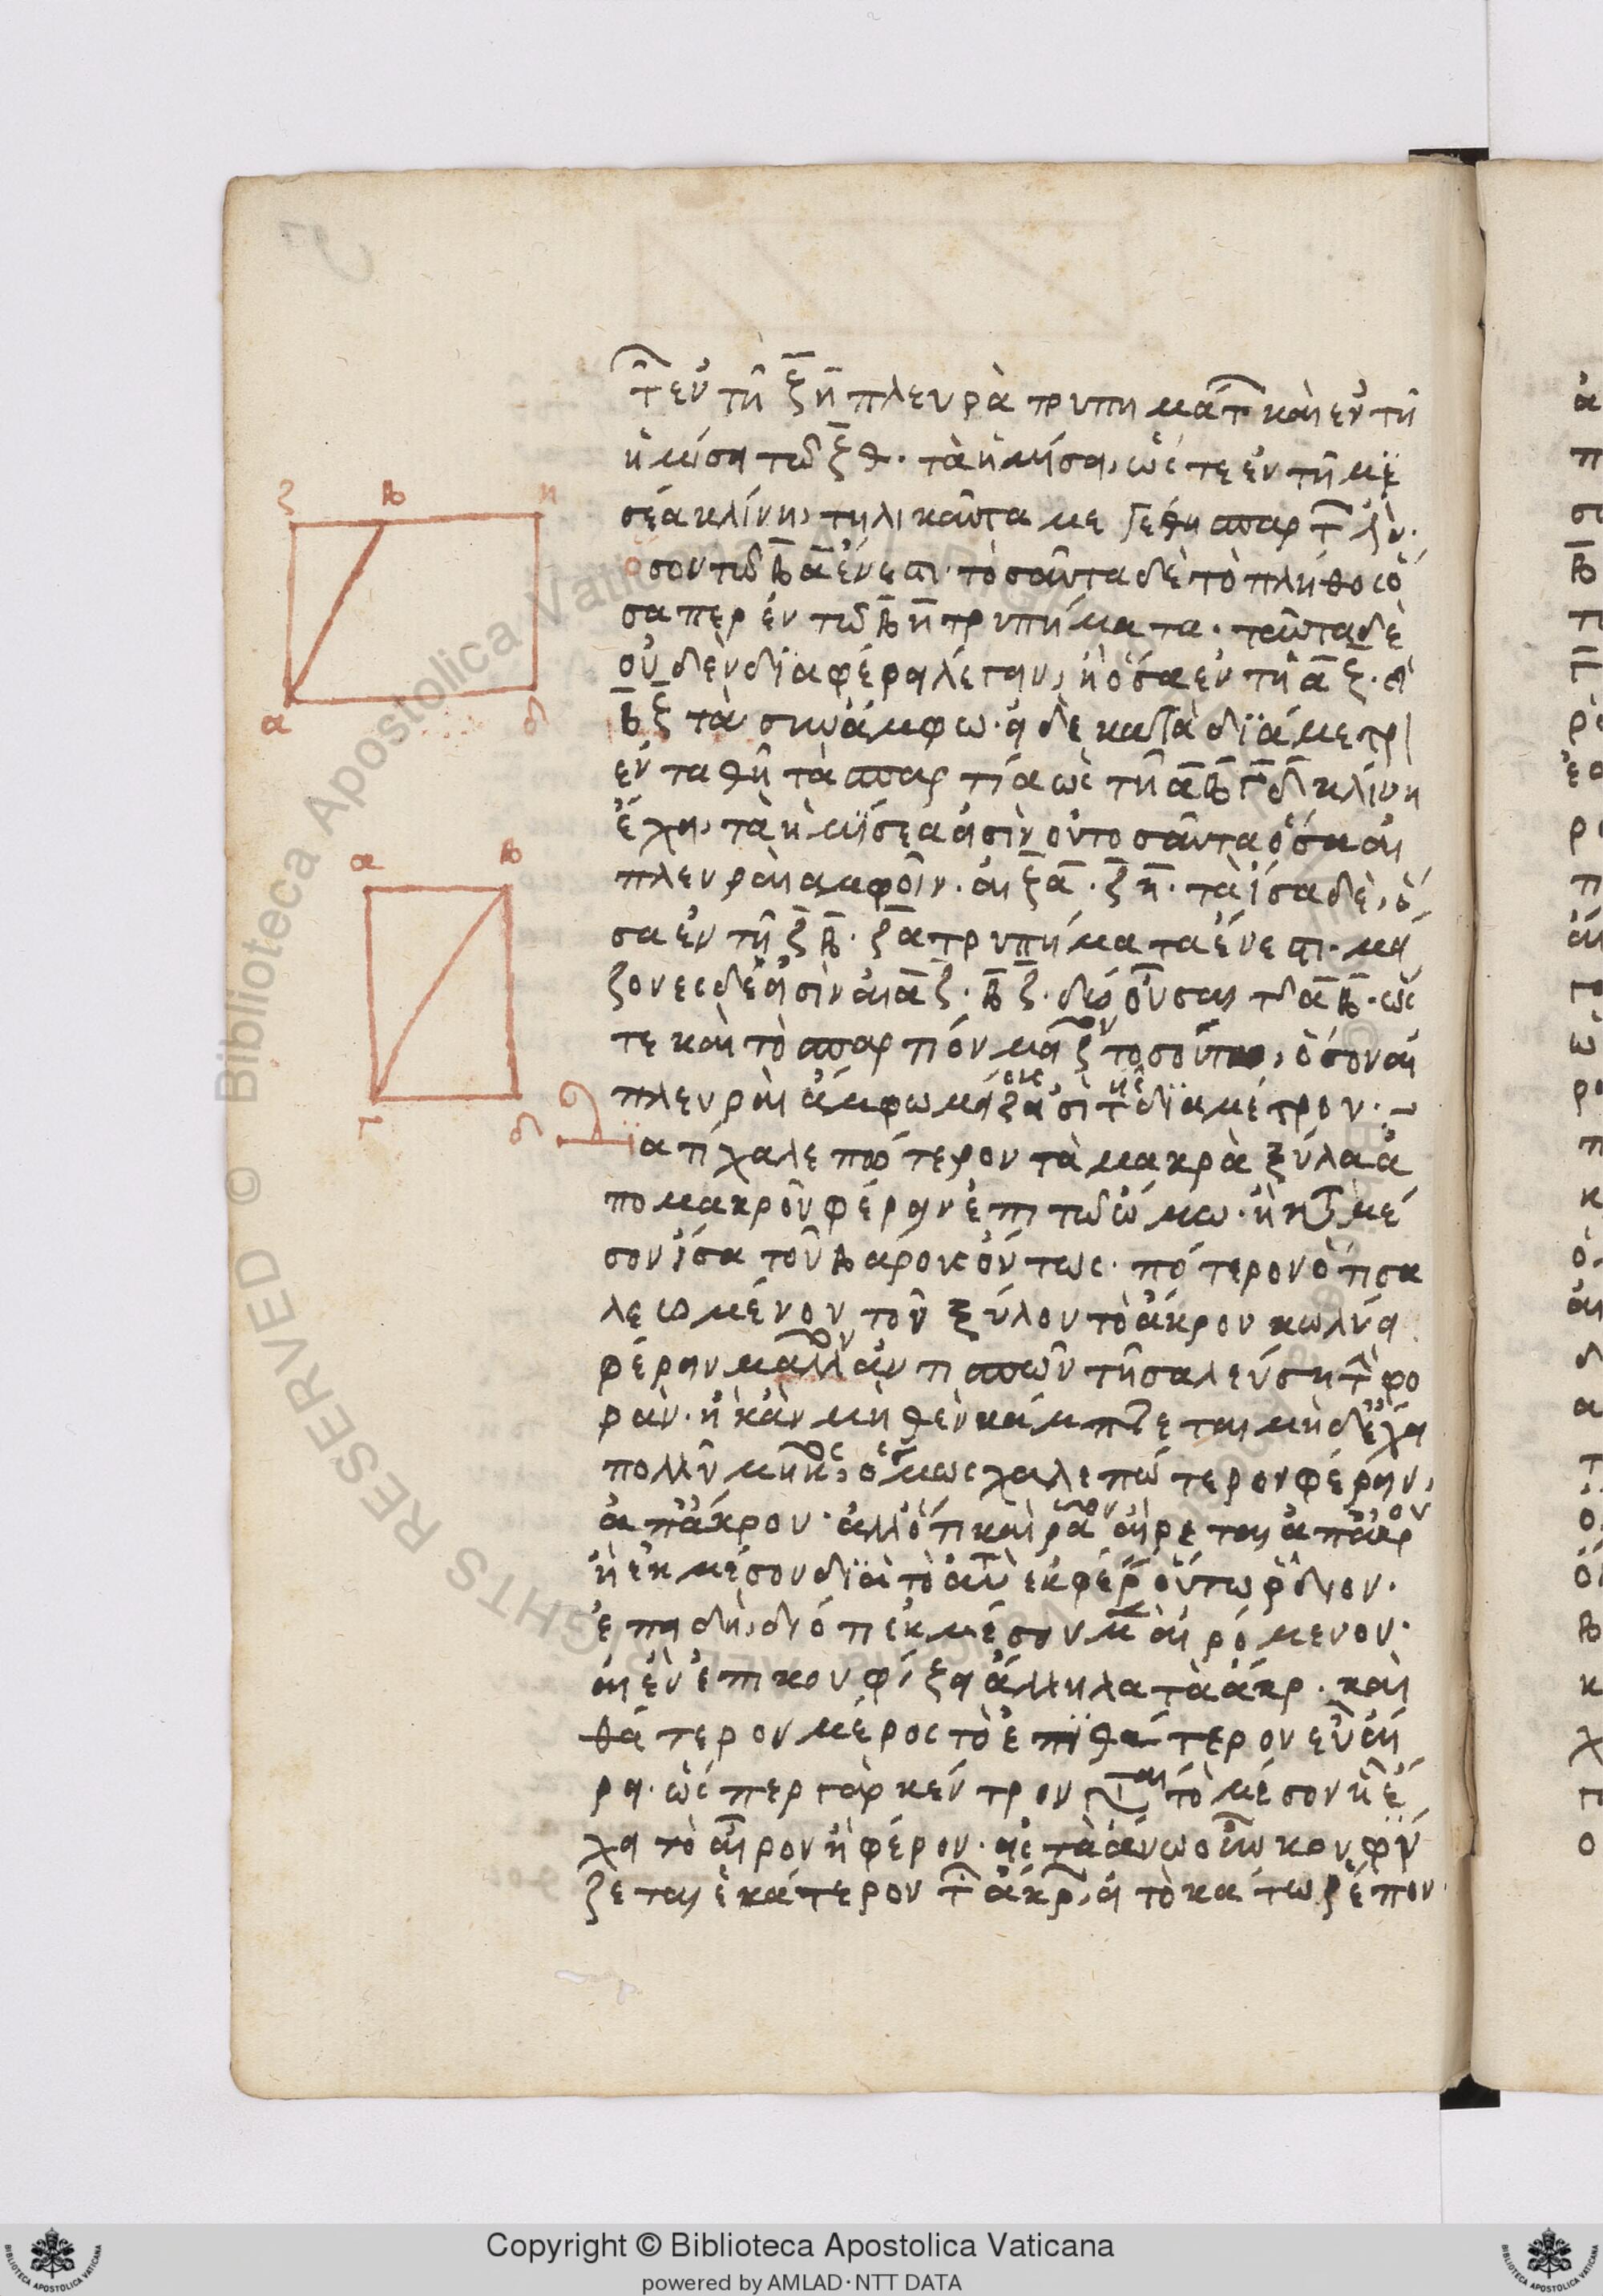 τ̑ ἐν τῆ ξ̅η̅ πλευρὰ τρυπημάτ κὰι ἐν τῆ
ἡμίσει τῶ ξ̅θ̅. τὰ ἡμήσει, ὥςτε ἐν τῆ μϊ
σέα κλίνη, τηλικαῦτα μεγέθη σπαρτ
ὅσον τῶ β̅α̅ ἔνεστι· τοσαῦτα δὲ τὸ πλῆθος ὅ
σα περ ἐν τῶ β̅η̅ τρυπήματα· ταῦτα δὲ
οὐδὲν δϊαφέρει λέγειν, ἢ ὅσα ἐν τῆ α̅ξ̅.
β̅ξ̅ τὰ συνάμφω· εἰ δὲ κατὰ δϊάμετρ
ἐνταθῆ τὰ σπαρτία ὡς τῆ α̅β̅γ̅δ̅ κλίνη
ἔχει, τὰ ἡμίσεα εἰσὶν οὐ τοσαῦτα ὅσα αἱ
πλευρὰι ἀμφοῖν. ἁι ξ̅α̅. ζ̅η̅. τὰ ἴσα δὲ, ὅ
σα ἐν τῆ ζ̅β̅. ζ̅α̅ τρυπήματα ἔνεστι· μεί
ζονες δέ εἰσὶν ἁι α̅ζ̅. β̅ζ̅. δύο οὖσαι τῶ α̅β̅. ὥς
τε κὰι τὸ σπαρτίον μεῖζον τοσούτω, ὅσον αἱ
πλευρὰι ἄμφω μείζους εἰσὶ τῆς δϊαμέτρου.
Δϊατί χαλεπώτερον τὰ μακρὰ ξύλα ἀ
πομακροῦ φέρειν ἐπι τῶ ὤμω· ἢ κτ̑ μέ
σον ἴσα τοῦ βάροις ὄντως· πότερον ὅτι σα
λευομένου τοῦ ξύλου τὸ ἄκρον κωλύει
φέρειν μᾶλλον ἀντισπῶν τῆ σαλεύσητ̑ φο
ράν· ἢ κἂν μηθὲν κάμπτεται μὴδ' ἔχει
πολλὺ μῆκος, ὅμως χαλεπώτερον φέρειν,
ἀπάκρου· ἀλλ' ὅτι κὰι ρᾶον ἄιρεται ἀπάκρου
ἢ ἐκ μέσου δϊὰ τὸ ἀυτὸ ἐκφέρ οὕτω ῥάδιον.
ἐπειδὴ, διότι ἐκ μέσου μ ἀιρόμενον·
ἀιεὶ ἐπικουφίξει ἄλληλα τὰ ἄκρ. κὰι
θάτερον μέρος τὸ ἐπϊθάτερον εὖ ἄι
ρει. ὥςπερ γὰρ κέντρον γίνεται τὸ μέσον ἧ ἔ
χει τὸ ἄιρον ἢ φέρον. εἰς τὰ ἄνω οὖν κουφΰ
ζεται ἑκάτερον τ̑ ἄκρ, εἰ τὸ κάτω ῥέπον.
ζ β η
α δ
α β
γ δ
Copyright © Biblioteca Apostolica Vaticana
powered by AMLAD·NTT DATA